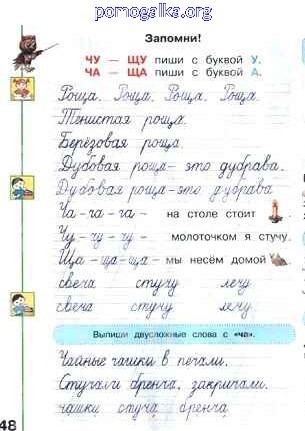 pomogalka.org
Запомни!
ЧУ – ЩУ пиши с буквой У.
ЧА – ЩА пиши с буквой А.
Роща. Роща. Роща. Роща.
Тенистая роща.
Берёзовая роща.
Дубовая роща – это дубрава.
Дубовая роща – это дубрава
Ча – ча – ча – на столе стоит
Чу – чу – чу – молоточком я стучу.
Ща – ща – ща – мы несём домой
свеча стучу лечу
свеча стучу лечу
Выпиши двусложные слова с «ча».
Чайные чашки в печали,
Стуча и бренча, закричали.
чашки стуча бренча
48